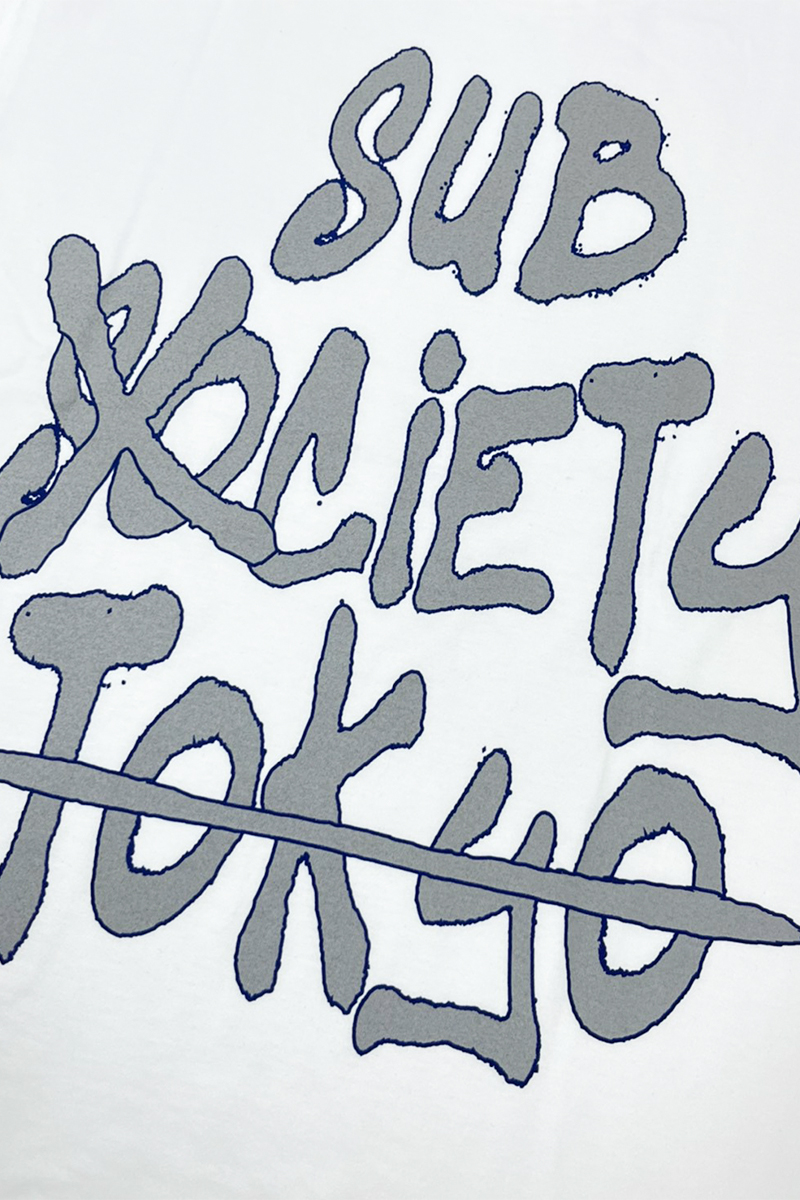 SUB
SOCiETy
TOKyO